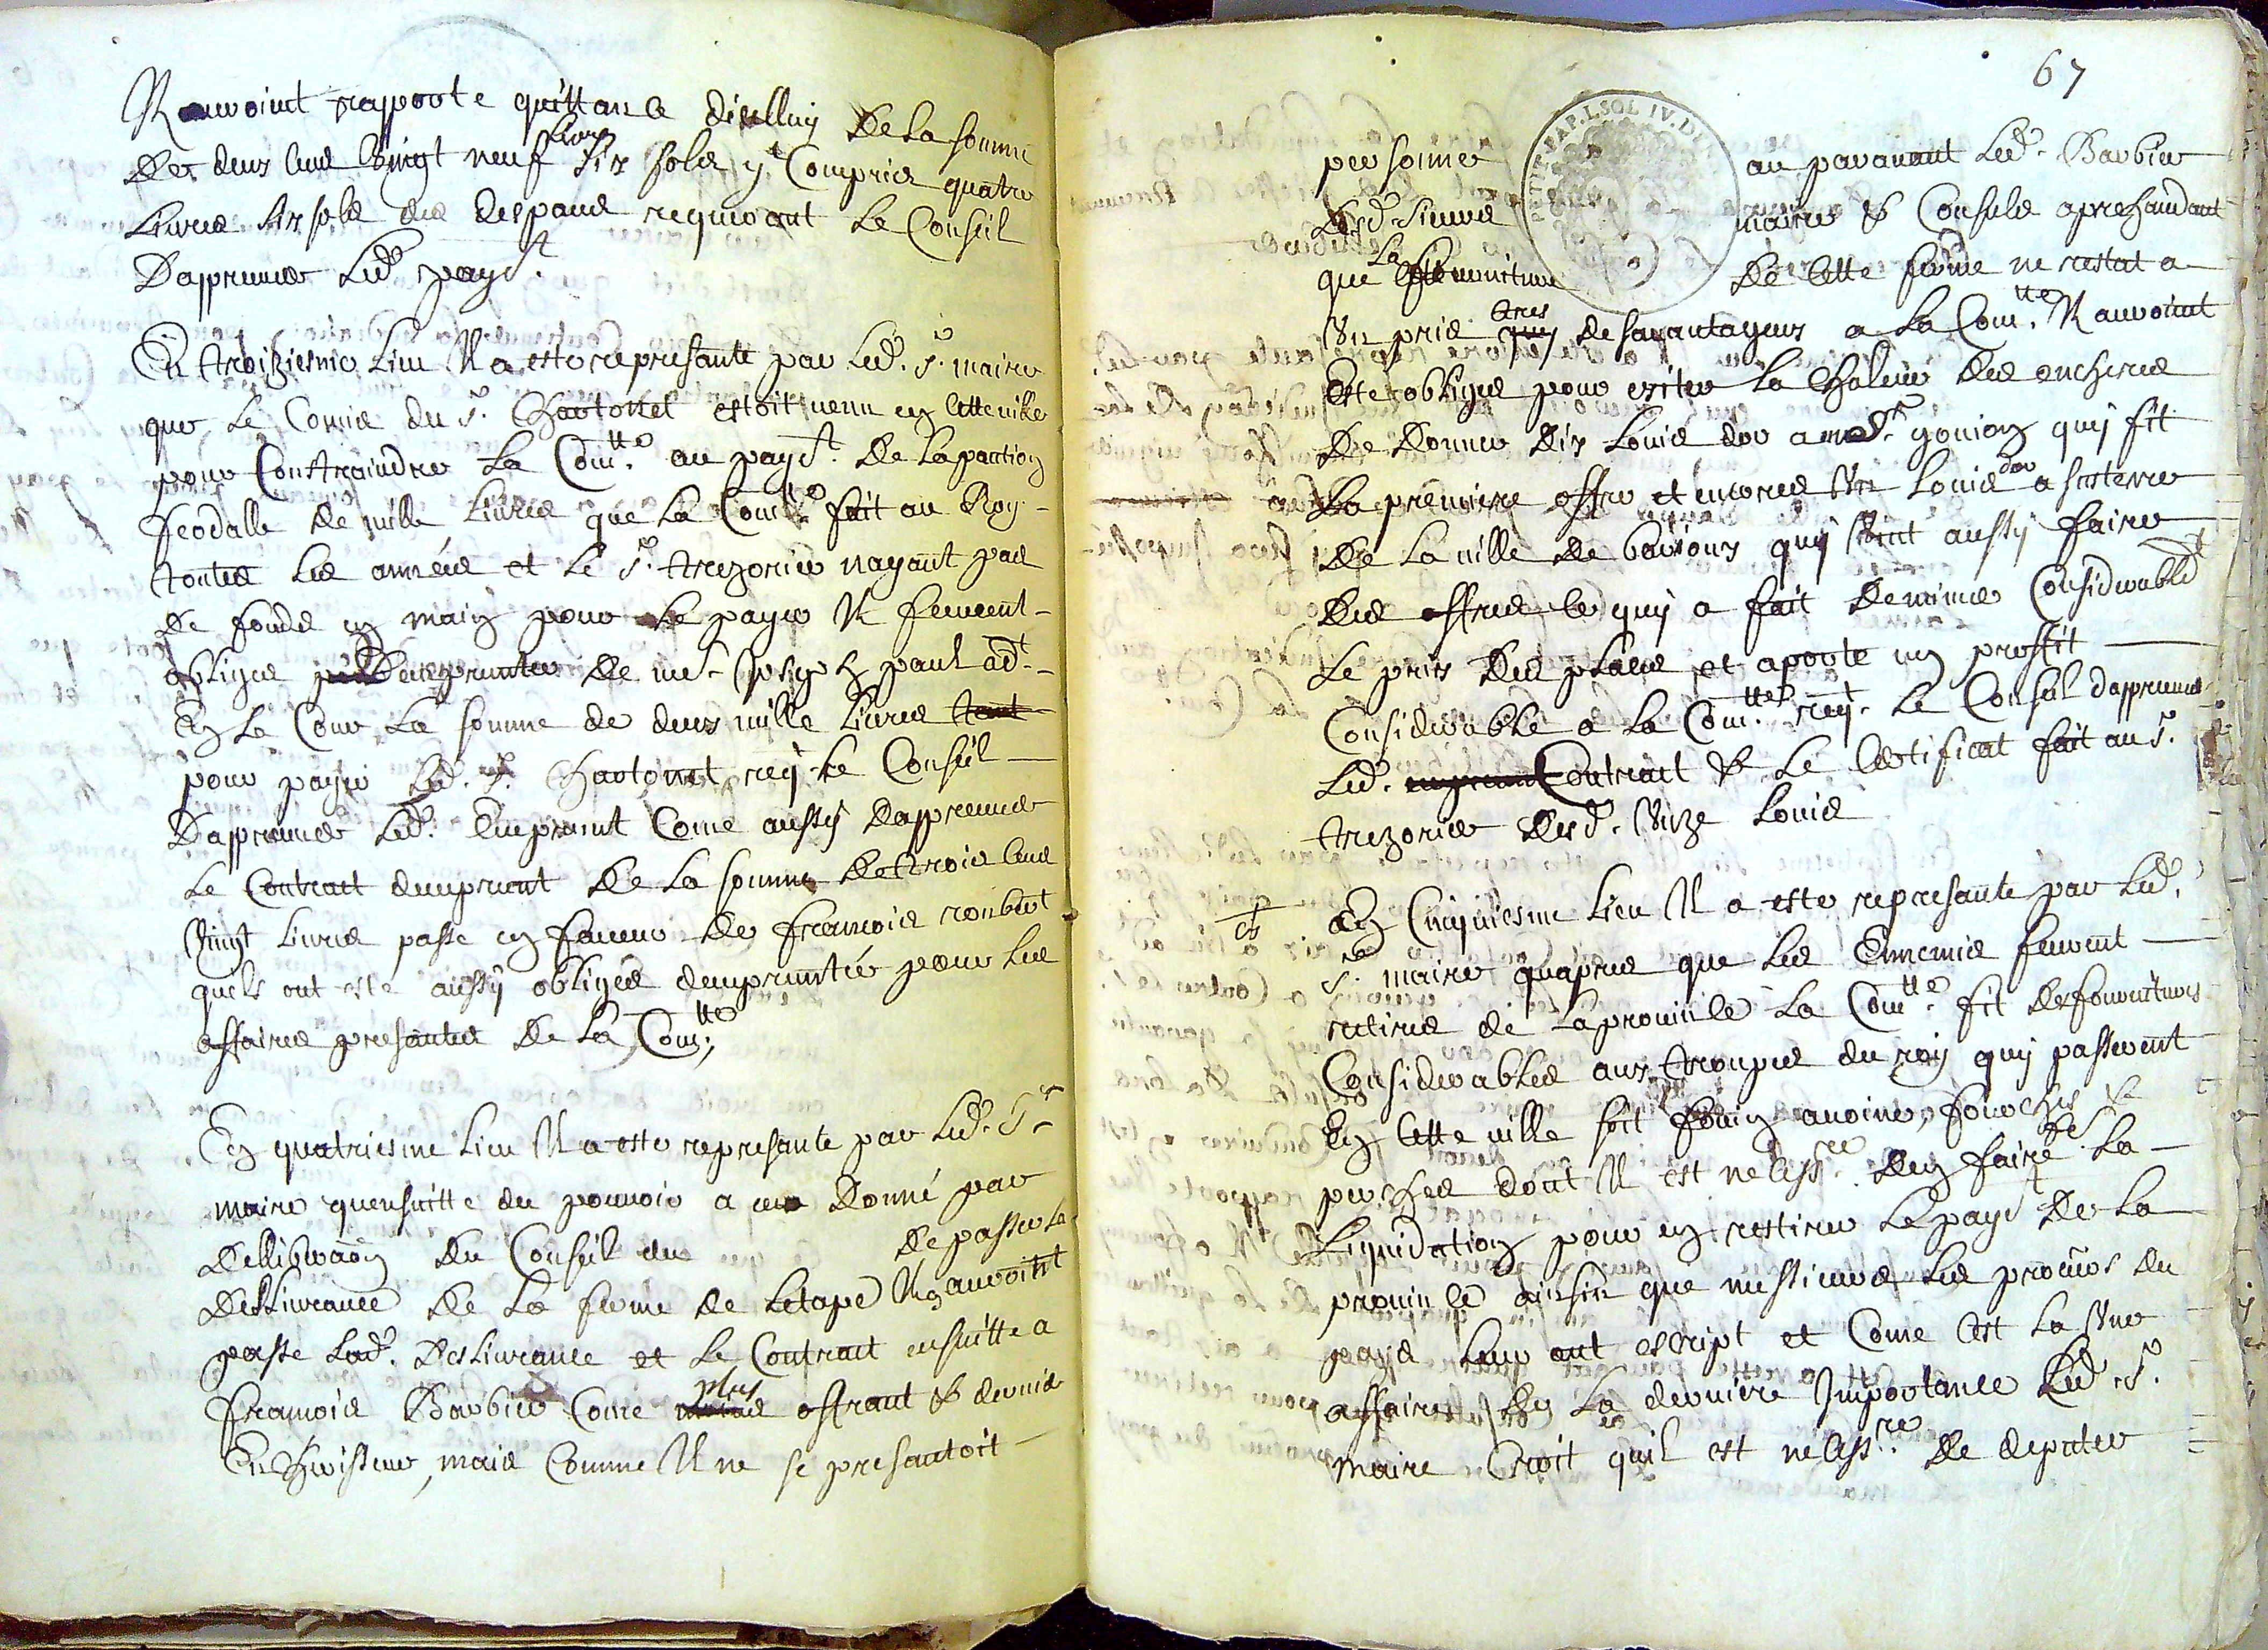 Rauvoint rapporte quittance dicelluy De la somme
De deus cens Vingt neuf livres six sols y Compris quatre
Livres six sols des despans requierant Le Conseil
Dapprenuer Led. payt.
En troiziesme Lieu Il a este represante par Led. sr. maire
que Le Comis du sr. Chartonet estoit venu en cette ville
pour Constraindre La Comtte. au payt. De la paction
feodalle De mille Livres que La Comtte. fait au Roy
toutes Les années et Le sr. trezorier nayant pas
De fonds en main pour Le payer Il feurent
obliges Demprunter De mr. Joseph paul adt.
En La Cour La somme de deux mille Livres tant
pour payer Led. sr. Chartonet req. Le Conseil
Dapprenuer Led. Emprunt Come aussy Dapprenuer
Le Contrait demprunt De La somme De trois cens
Vingt Livres passe en faveur De francois roubert
quels ont este aussy obliges demprunter pour Les
affaires presantes De La Comtte.
En quatriesme Lieu Il a este represante par Led. Sr.
maire quensuitte du pouvoir a eux Donné par
Delliberaon Du Conseil du De passer La
Deslivrance De La ferme De Letape Ils auvoint
passe Lad. Deslivrance et Le Contrait ensuitte a
francois Barbier Come plus offrant & dernier
Encherisseur, mais Comme Il ne se presantoit
67
PETIT PAP. 1. SOL IV. D.
personne au paravant Led. Barbier
Lesd. sieurs maire & Consuls aprehandant
que La fourniture De cette ferme ne restat a
Un pris tres desavantageus a La Comtte. Il auvoint
Este obliges pour exiter La Chaleur des encheres
De Donner Dix Louis dor a mr. gonion quy fit
La premiere offre et encores Un Louis dor a
De La ville De quy Vint aussy faire
Des offres Ce quy a fait Deminuer Considerablet
Le pris Des places et aporte un proffit
Considerable a La Comtte. req. Le Conseil dapprenuer
Led. Contrait & Le Certificat fait au sr.
trezorier Desd. Unze Louis
En Cinquiesme Lieu Il a este represante par Led.
sr. maire quapres que Les Ennemis feurent
retires de La province La Comtte. fit des fournitures
Considerables aux troupes du roy quy passerent
En Cette ville soit foin avoine, fourches &
perches dont Il est necessre. Den faire La
Liquidation pour en restirer Le payt De La
province ainsin que messieurs Les procurs du
pays Leur ont escript et Come Cest La Une
affaire De La derniere Importance Led. sr.
maire Croit quil est necessre. De deputer